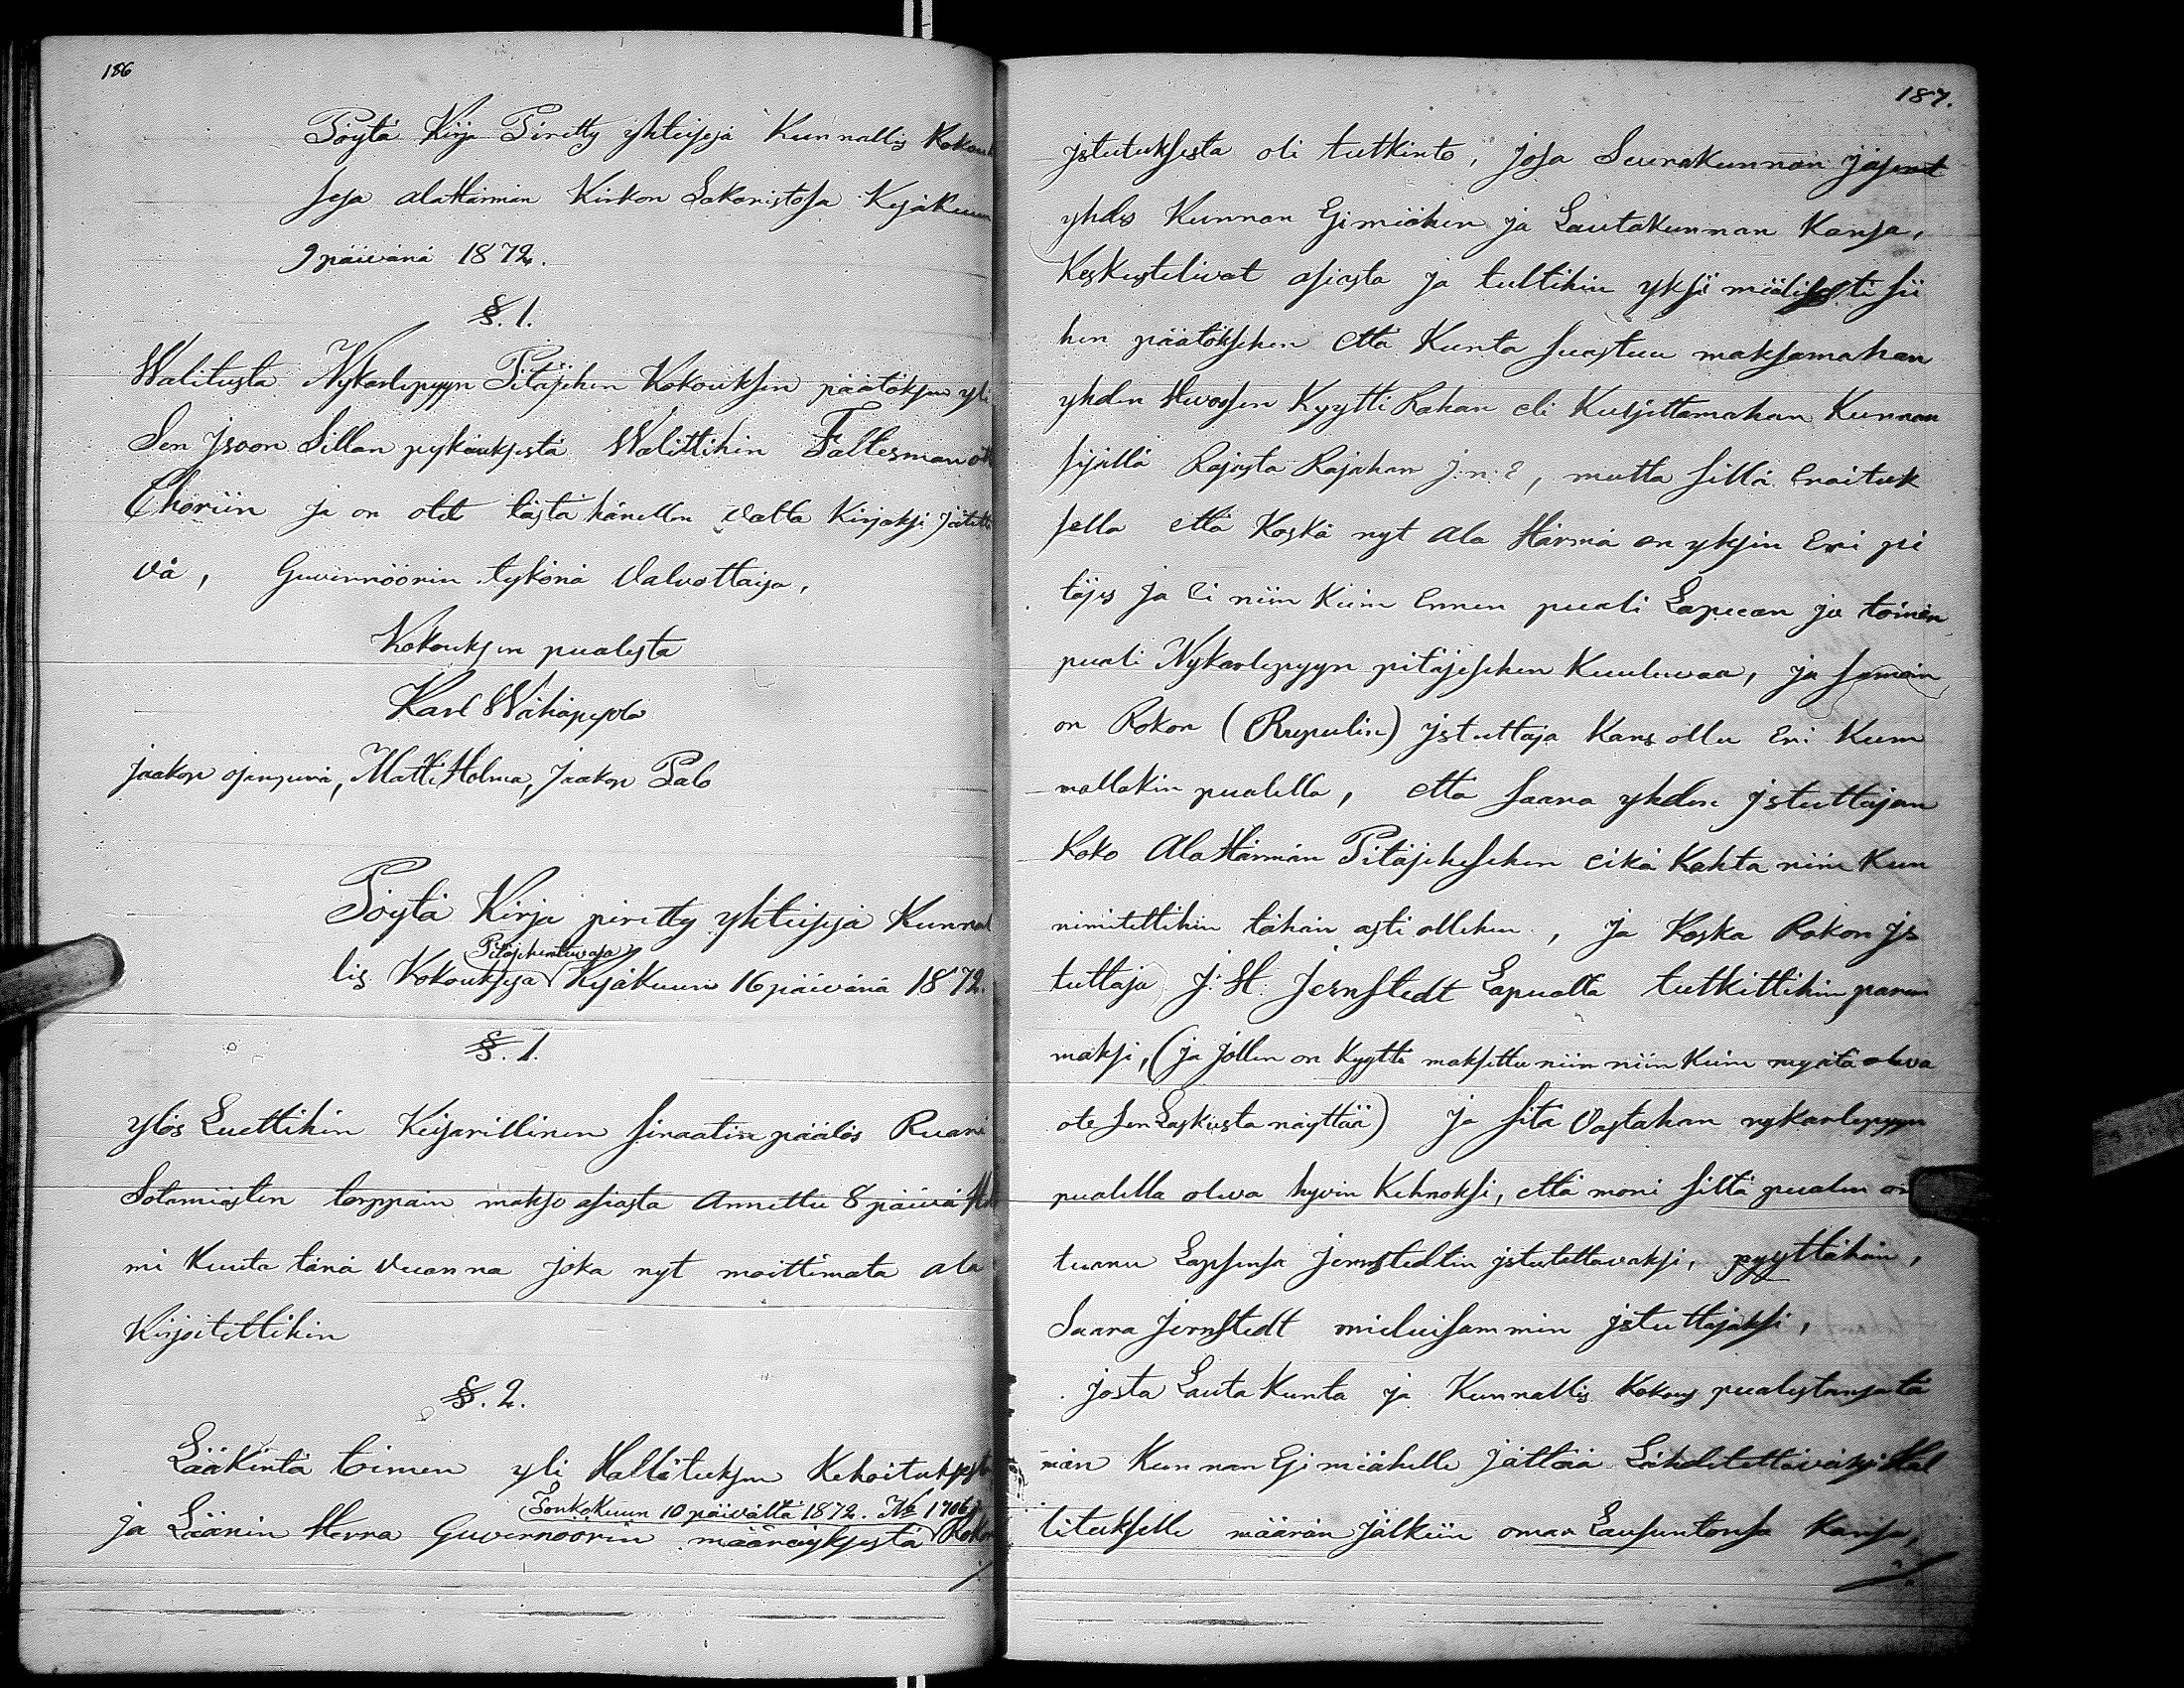 186
Pöytä Kirja Piretty yhteisesä Kunnallis Kokouk
sesa alaHärmän Kirkon Sakaristosa Kesäkuun
9 päivänä 1872.
§. 1.
Walitusta Nykarlepyyn Pitäjehen Kokouksen päätöksen yli
Sen Isoon Sillan pykäuksestä Walittihin Faltesmanni
Thoriin ja on otet tästä hänellen Valta Kirjaksi jätettä
vä, Guvernöörin tykönä Valvottaisa,
Kokouksen puolesta
Karl Wähäpesola
jaakop ojanperä, Matti Holma, Jaakop Palo
Pöytä Kirja piretty yhteisesä Kunnal
Pitäjehentuvasa
lis Kokouksesa Kesäkuun 16 päivänä 1872.
§. 1.
ylös Luettihin Keisarillinen Sinaatin päätös Ruani
Sotamiästen torppain makso asiasta Annettu 8 päivä
mi Kuuta tänä Vuanna joka nyt moittimata ala
Kirjoitettihin
§. 2.
Lääkintä toimen yli Hallituksen Kehoituksesta
Toukokuun 10 päivältä 1872. No 1706
ja Läänin Herra Guvernöörin määräyksestä Rokon
./.
187.
jstutuksesta oli tutkinto, josa Seurakunnan jäsent
yhdes Kunnan Esimiähen ja Lautakunnan Kansa,
Keskustelivat asiasta ja tultihin yksi miälisesti sii
hen päätöksehen että Kunta suastuu maksamahan
yhden Hevosen Kyytti Rahan eli Kuljettamahan Kunnan
sisällä Rajasta Rajahan j.n.e, mutta sillä Eroituk
sella että Koskä nyt ala Härmä on yksin Eri pi
täjäs ja Ei niin kuin Ennen puali Lapuan ja toinen
puali Nykarlepyyn pitäjesehen Kuuluvaa, ja samoin
on Rokon (Rupulin) jstuttaja Kans ollu Eri Kum
mallakin pualella, että saara yhden jstuttajan
Koko AlaHärmän Pitäjehesehen eikä Kahta niin Kun
nimitettihin tähän asti ollehen, ja Koska Rokon js
tuttaja J: H: Jernstedt Lapualta tutkittihin param
maksi, (ja jollen on Kyytti maksettu niin niin Kuin myätä oleva
ote sen Laskusta näyttää) ja sitä Vastahan nykarlepyyn
pualella oleva hyvin Kehnoksi, että moni siltä pualen on
tuanu Lapsensa Jernstedtin jstutettavaksi, pyyttähän,
Saara Jernstedt mieluisammin jstuttajaksi,
josta Lauta Kunta ja Kunnallis Kokous pualestansa tä
män Kunnan Esimiähelle jättää Lähdetettäväksi Hal
litukselle määrän jälkiin oman Lausuntonsa Kansa,
./.